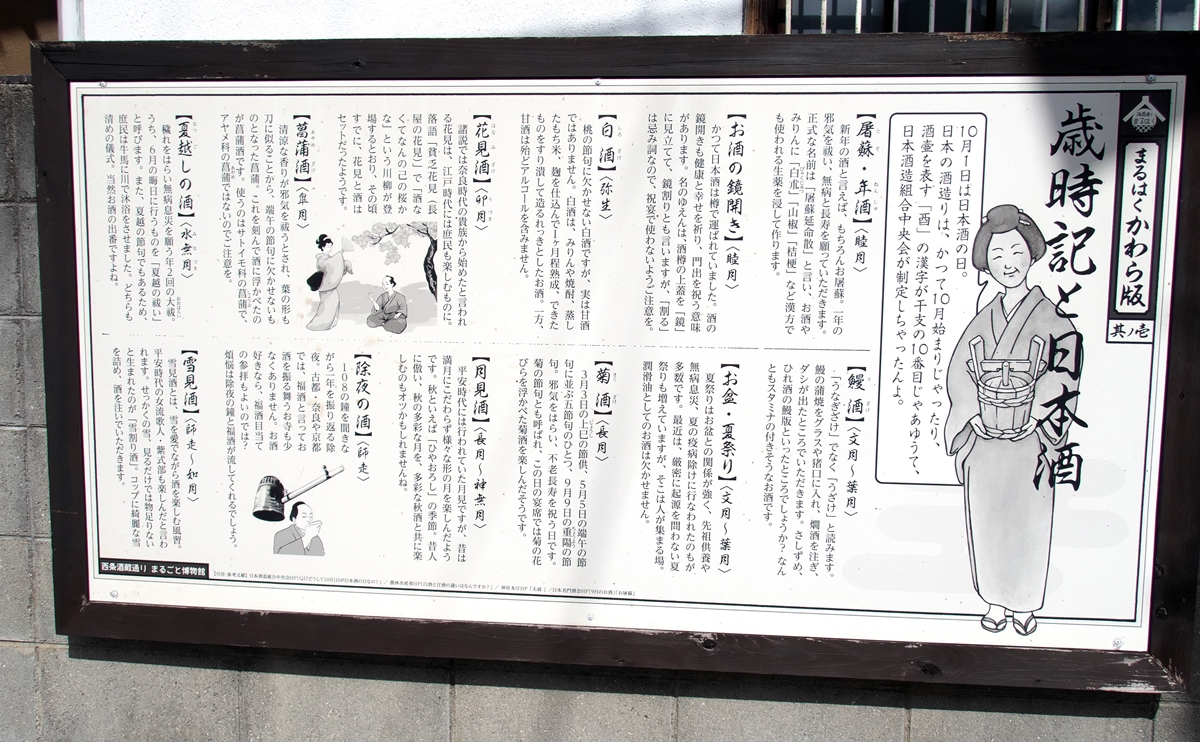 まるはくかわら版
其ノ壱
歳時記と日本酒
10月1日は日本酒の日。
日本の酒造りは、かつて10月始まりじゃったり、
酒壷を表す「酉」の漢字が干支の10番目じゃあゆうて、
日本酒造組合中央会が制定しちゃったんよ。
【屠蘇・年酒】〈睦月〉
新年の酒と言えば、もちろんお屠蘇。一年の
邪気を祓い、無病と長寿を願っていただきます。
正式な名前は「屠蘇延命散」と言い、お酒や
みりんに「白朮」「山椒」「桔梗」など漢方で
も使われる生薬を浸して作ります。
【お酒の鏡開き】〈睦月〉
かつて日本酒は樽で運ばれていました。酒の
鏡開きも健康と幸せを祈り、門出を祝う意味
があります。名のゆえんは、酒樽の上蓋を「鏡」
に見立てて、鏡割りとも言いますが、「割る」
は忌み詞なので、祝宴で使わないようご注意を。
【白酒】〈弥生〉
桃の節句に欠かせない白酒ですが、実は甘酒
ではありません。白酒は、みりんや焼酎、蒸し
たもち米、麹を仕込んで1ヶ月程熟成、できた
ものをすり潰して造るれっきとしたお酒。一方、
甘酒は殆どアルコールを含みません。
【花見酒】〈卯月〉
諸説では奈良時代の貴族から始めたと言われ
る花見は、江戸時代には庶民も楽しむものに。
落語「貧乏花見（長
屋の花見）」で「酒な
くてなんの己の桜か
な」という川柳が登
場するとおり、その頃
すでに、花見と酒は
セットだったようです。
【菖蒲酒】〈皐月〉
清涼な香りが邪気を祓うとされ、葉の形も
刀に似ることから、端午の節句に欠かせないも
のとなった菖蒲。これを刻んで酒に浮かべたの
が菖蒲酒です。使うのはサトイモ科の菖蒲で、
アヤメ科の菖蒲ではないのでご注意を。
【夏越しの酒】〈水無月〉
穢れをはらい無病息災を願う年2回の大祓。
うち、6月の晦日に行うものを「夏越の祓い」
と呼びます。また、夏越の節句でもあるため、
庶民は牛馬に川で沐浴をさせました。どちらも
清めの儀式。当然お酒の出番ですよね。
【鰻酒】〈文月～葉月〉
「うなぎざけ」でなく「うざけ」と読みます。
鰻の蒲焼をグラスや猪口に入れ、燗酒を注ぎ、
ダシが出たところでいただきます。さしずめ、
ひれ酒の鰻版といったところでしょうか？なん
ともスタミナの付きそうなお酒です。
【お盆・夏祭り】〈文月～葉月〉
夏祭りはお盆との関係が強く、先祖供養や
無病息災、夏の疫病除けに行なわれたのもが
多数です。最近は、厳密に起源を問わない夏
祭りも増えていますが、そこは人が集まる場。
潤滑油としてのお酒は欠かせません。
【菊酒】〈長月〉
3月3日の上巳の節供、5月5日の端午の節
句に並ぶ五節句のひとつ、9月9日の重陽の節
句。邪気をはらい、不老長寿を祝う日です。
菊の節句とも呼ばれ、この日の宴席では菊の花
びらを浮かべた菊酒を楽しんだそうです。
【月見酒】〈長月～神無月〉
平安時代には行われていた月見ですが、昔は
満月にこだわらず様々な形の月を楽しんだよう
です。秋といえば「ひやおろし」の季節。昔人
に倣い、秋の多彩な月を、多彩な秋酒と共に楽
しむのもオツかもしれませんね。
【除夜の酒】〈師走〉
108の鐘を聞きな
がら一年を振り返る除
夜。古都・奈良や京都
では、福酒と言ってお
酒を振る舞うお寺も少
なくありません。お酒
好きなら、福酒目当て
の参拝もよいのでは？
煩悩は除夜の鐘と福酒が流してくれるでしょう。
【雪見酒】〈師走～如月〉
雪見酒とは、雪を愛でながら酒を楽しむ風習。
平安時代の女流歌人・紫式部も楽しんだと言わ
れます。せっかくの雪、見るだけでは物足りない
と生まれたのが「雪割り酒」。コップに綺麗な雪
を詰め、酒を注いでいただきます。
西条酒蔵通り まるごと博物館